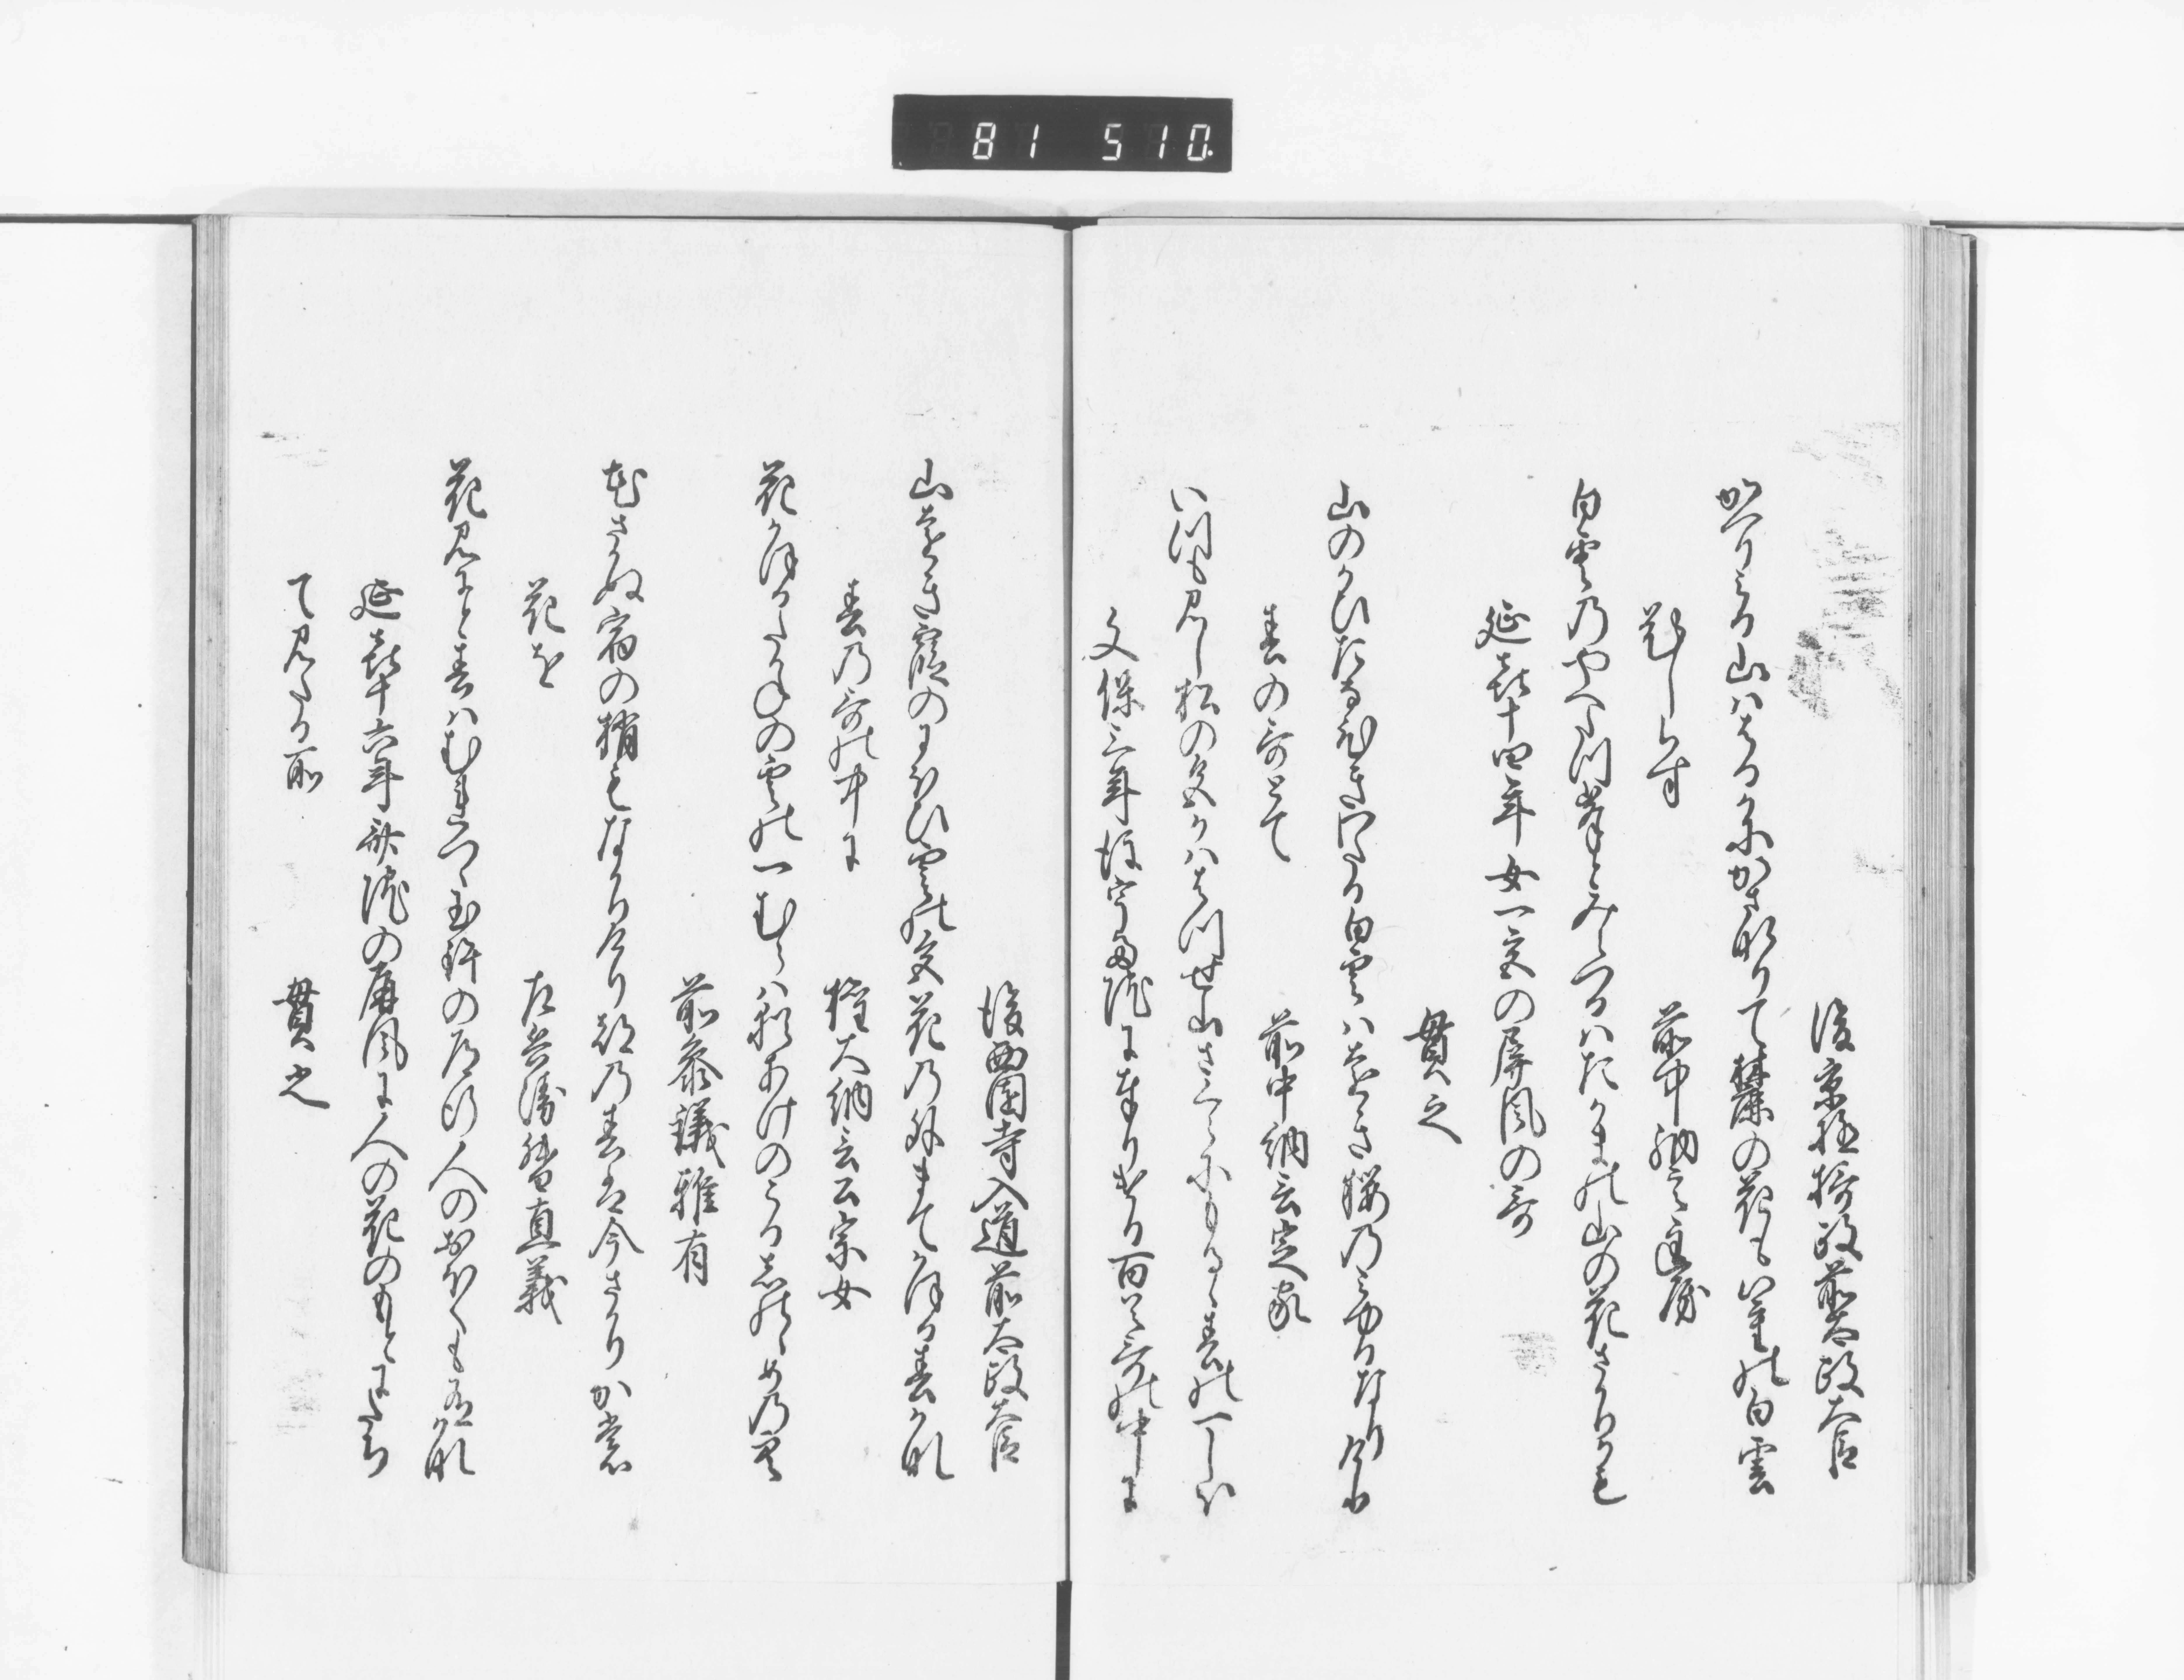 81 510
後京極摂政前太政大臣
かへりみる山ははるかにかさなりて麓の花も八重の白雲
題しらす
前中納言匡房
白雲のやへたつ峯とみえつるはたかまの山の花さかりかも
延喜十四年女一宮の屏風の哥
貫之
山のかひたなひきわたる白雲はとをき桜のみゆるなりけり
春の哥とて
前中納言定家
いつも見し松の色かははつせ山さくらにもるゝ春の一しほ
文保三年後宇多院に奉りける百首哥の中に
後西園寺入道前太政大臣
山とをき霞のにほひ雲の色花の外まてかほる春かな
春の哥の中に
権大納言公宗女
花かほるたかねの雲の一むらは猶あけのこるしのゝめの空
前参議雅有
花さかぬ宿の梢もなかりけり都の春は今さかりかも
花を
左兵衛督直義
花見にと春はむれつゝ玉鉾の道行人のおほくも有かな
延喜十六年斎院の屏風に人の花のもとにたち
て見たる所
貫之